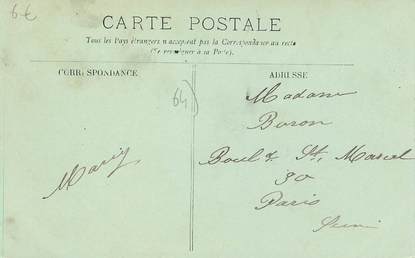 6€
CARTE POSTALE
Tous les Pays étrangers n'acceptent pas la Correspondance au recto
(Se renseigner à la Poste).
CORRESPONDANCE
ADRESSE
64
Madame
Boron
Boul d St. Marcel
30
Paris
Seine
Marie